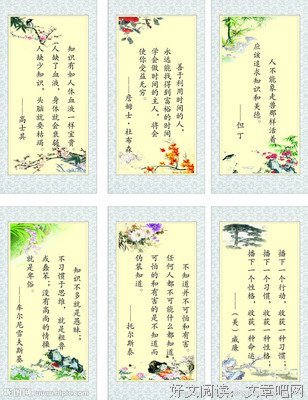 知识有如人体血液一样宝贵，
人缺了血液，身体就会衰弱，
人缺少知识，头脑就要枯竭。
——高士其
善于利用时间的人，
永远能找得到富裕的时间，
学会做时间的主人，将会
使你受益无穷
——詹姆士·杜布森
人不能象走兽那样活着，
应该追求知识和美德。
——但丁
知识不多就是愚昧；
不习惯于思维，就是粗鲁
或蠢笨；没有高尚的情操
就是卑俗。
——车尔尼雪夫斯基
不知道并不可怕和有害，
任何人都不可能什么都知道，
可怕的和有害的是不知道而
伪装知道。
——托尔斯泰
播下一个行动，收获一种习惯；
播下一个习惯，收获一种性格；
播下一个性格，收获一种命运
——（美）威廉
好文阅读：文章吧网